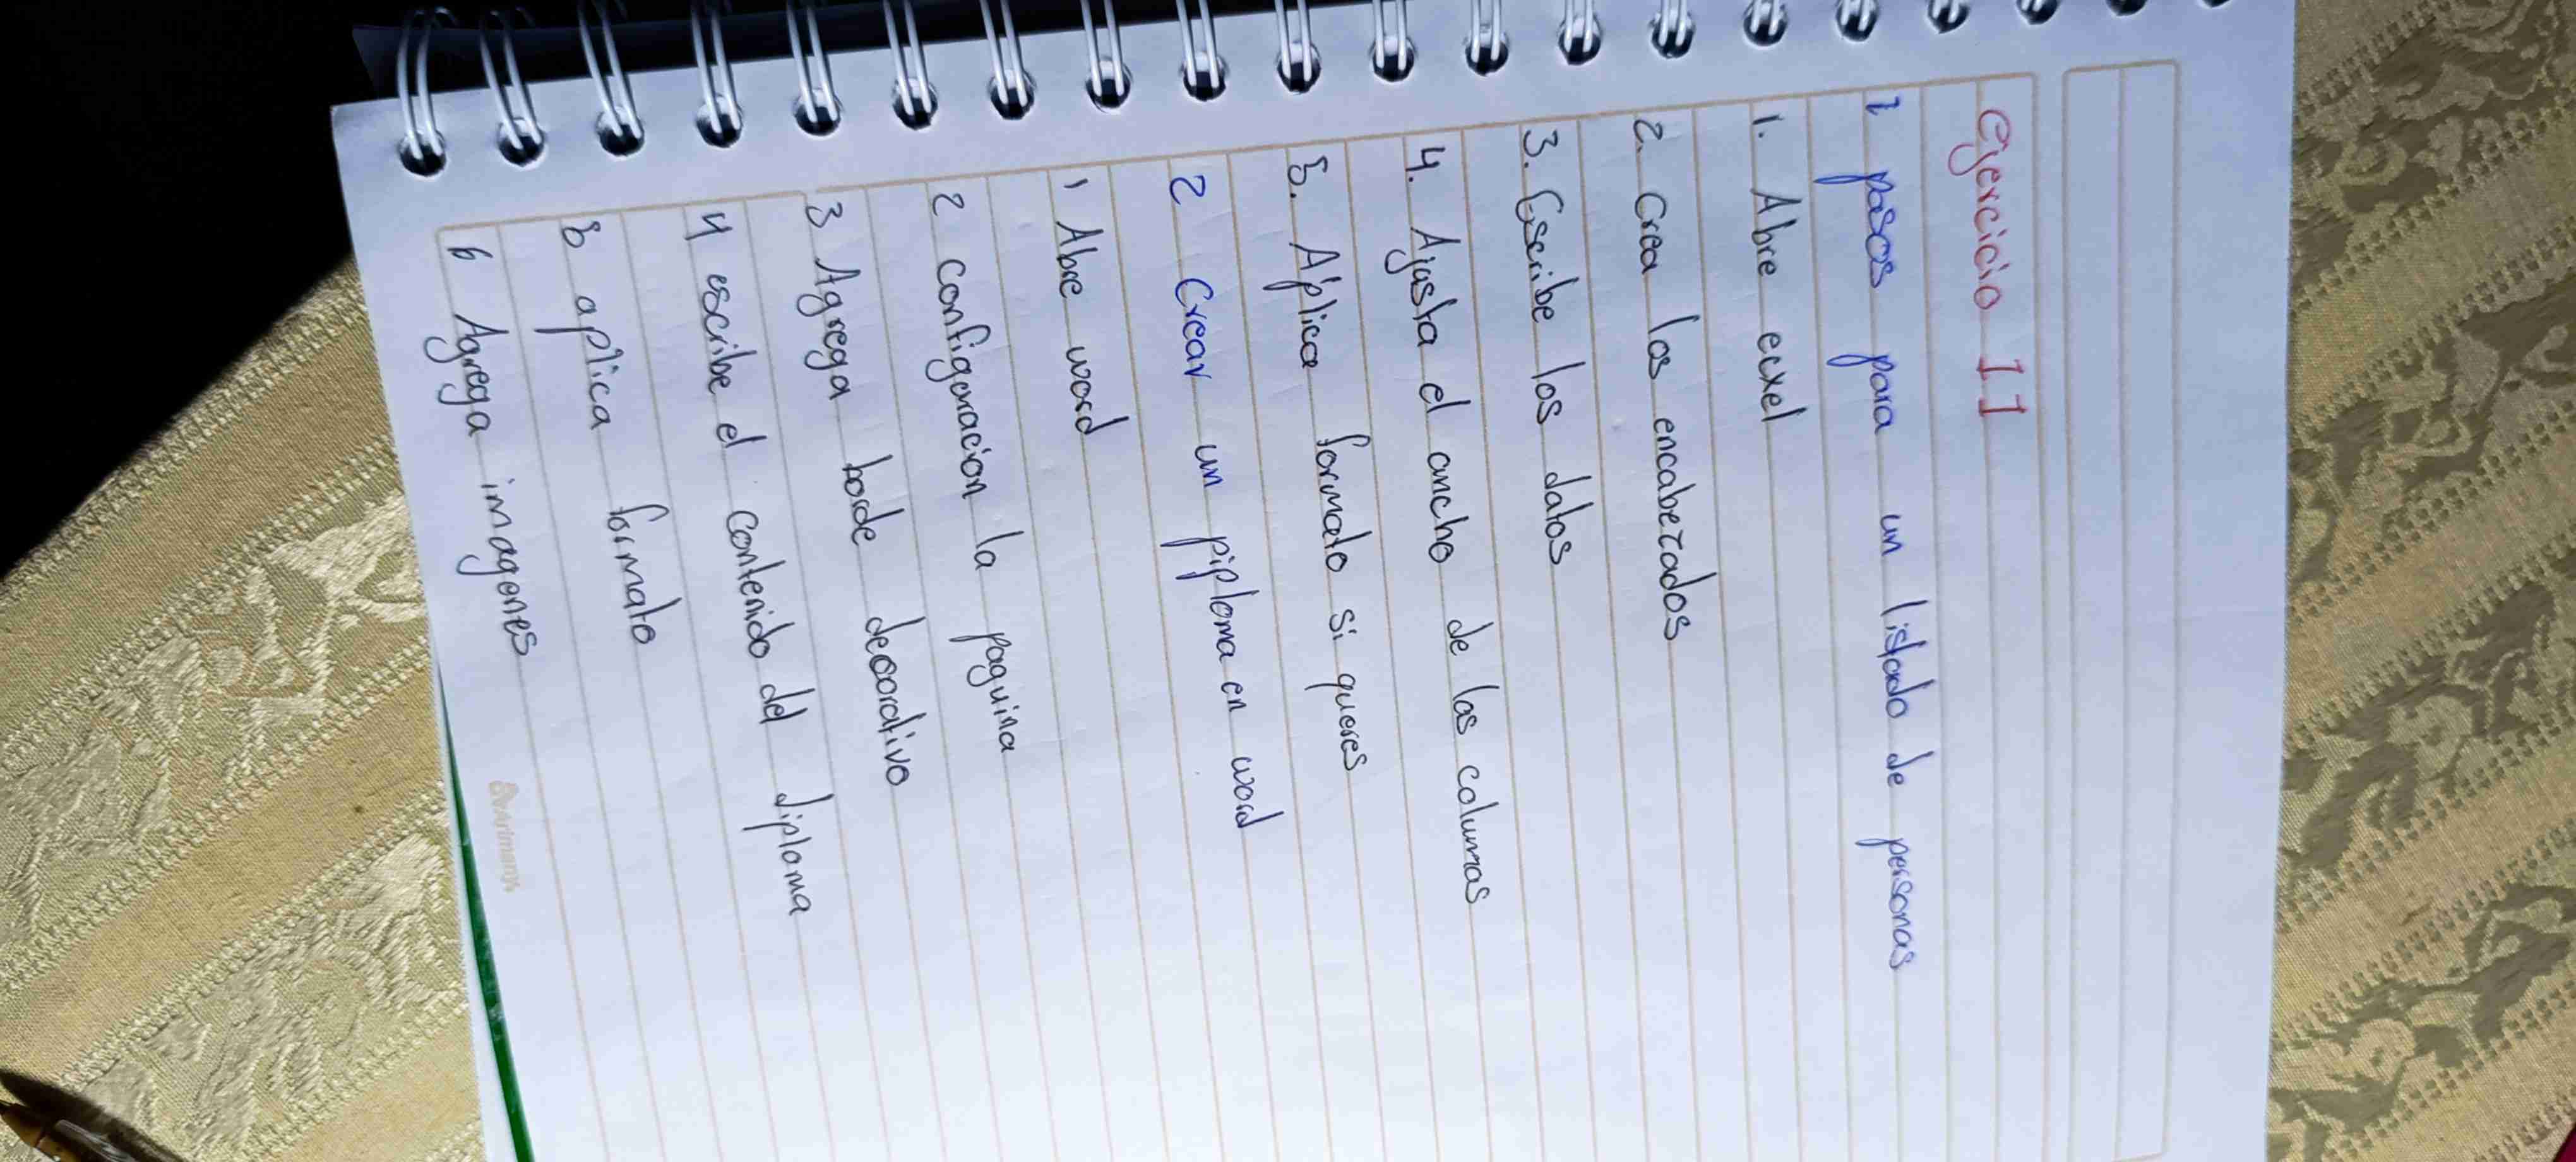 Ejercicio 11
1 pasos para un listado de personas
1. Abre ecxel
2. Crea los encabezados
3. Escribe los datos
4. Ajusta el ancho de las columnas
5. Aplica formato si queres
2 Crear un piploma en word
1 Abre word
2 configuracion la paguina
3 Agrega borde decorativo
4 escribe el contenido del diploma
5 aplica formato
6 Agrega imagenes
Artimanys